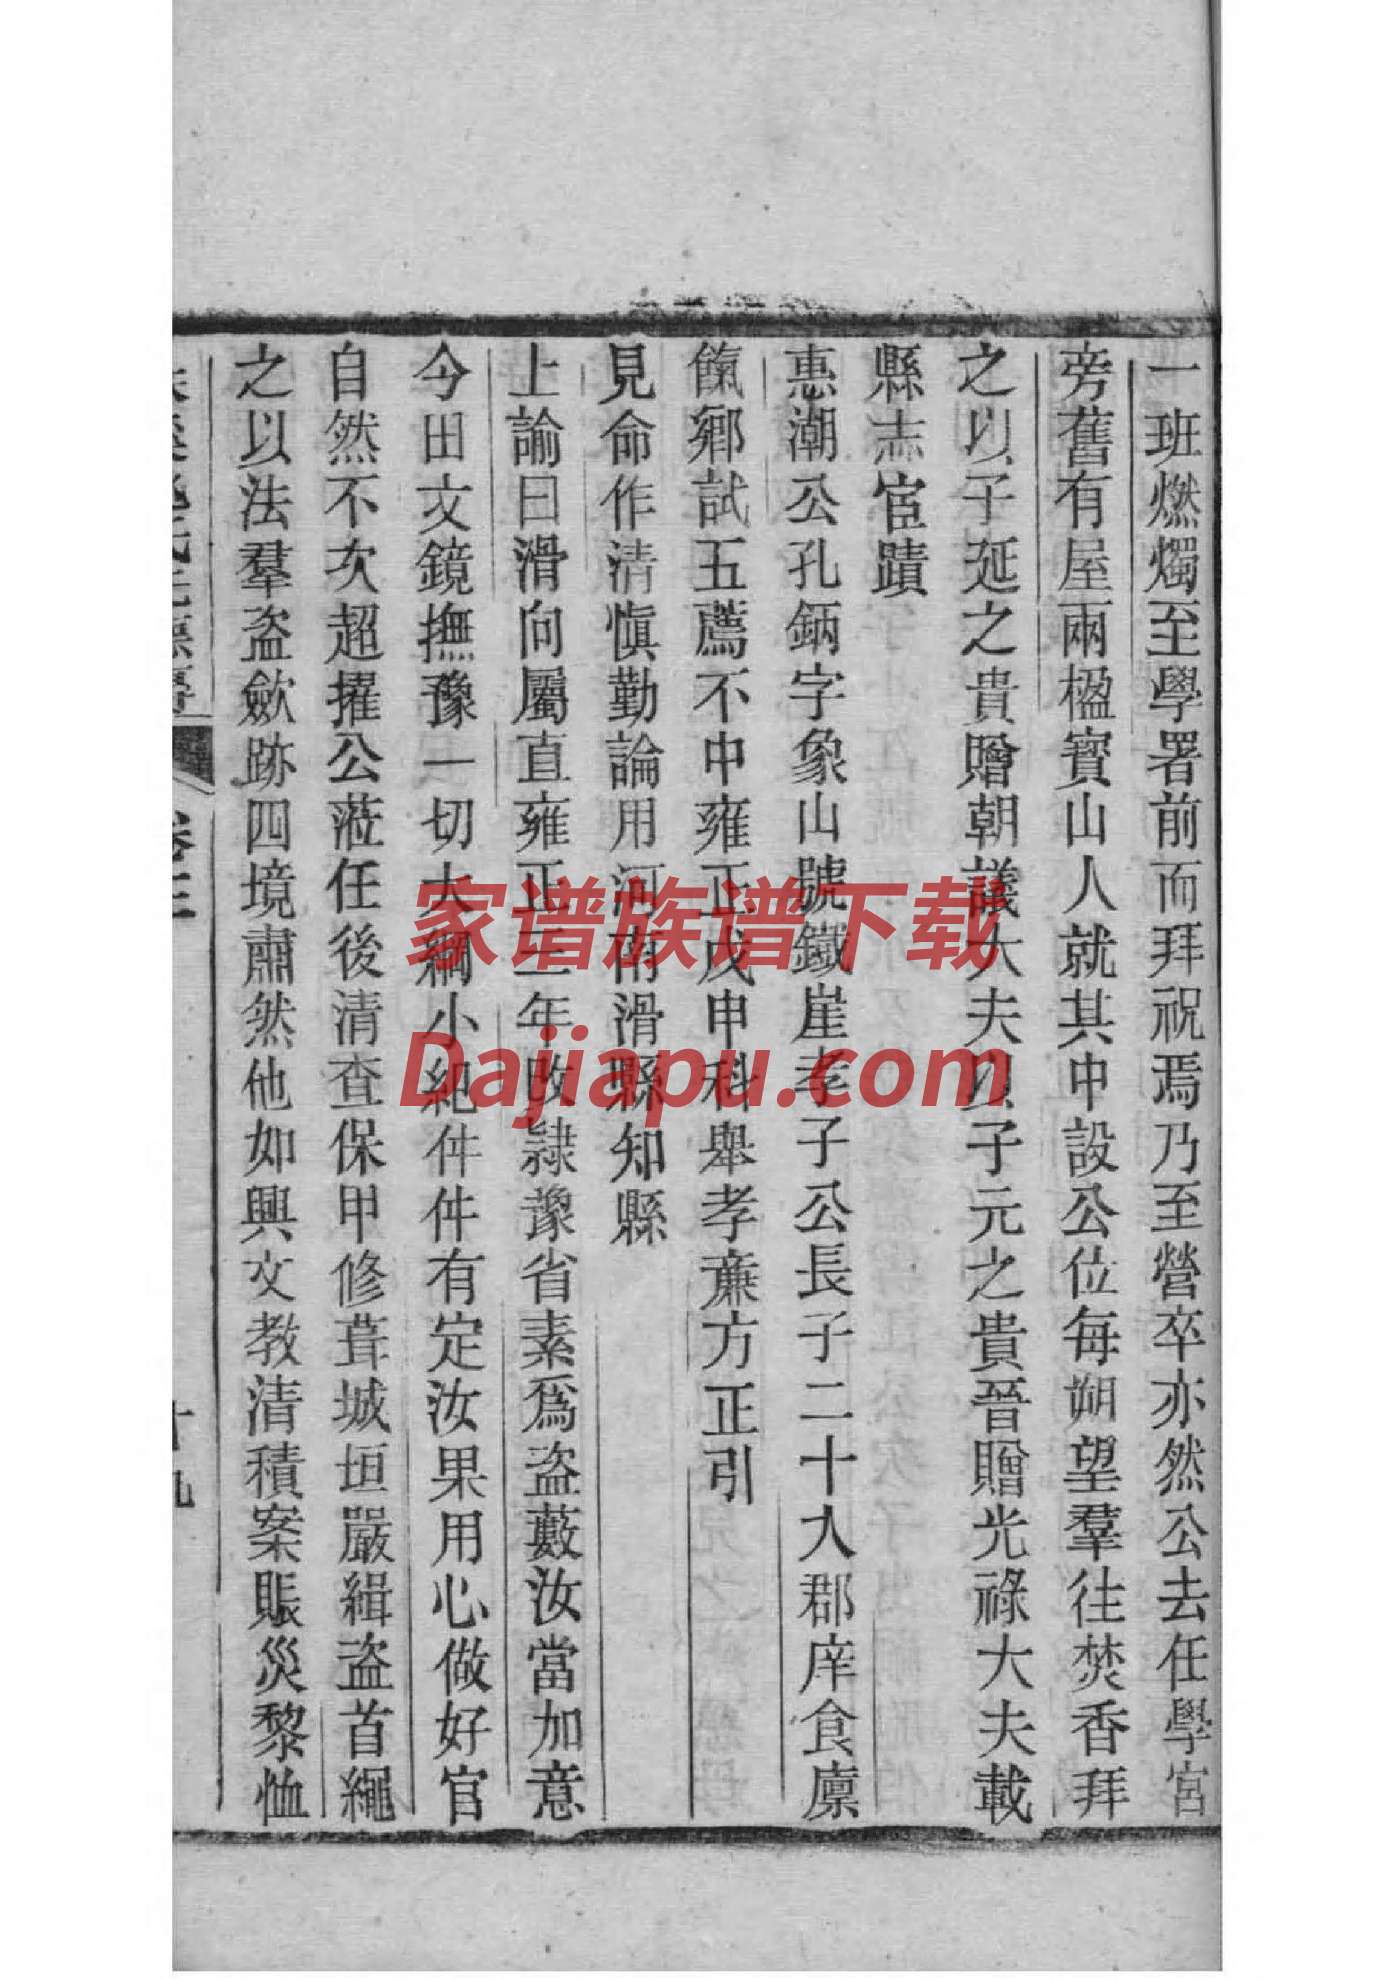 一班燃燭至學署前而拜祝焉乃至營卒亦然公去任學宮
旁舊有屋兩楹寳山人就其中設公位每朔望羣往焚香拜
之以子延之貴贈朝議大夫以子元之貴晉贈光祿大夫載
縣志宦蹟
惠潮公孔鈵字象山號鐵崖孝子公長子二十入郡庠食廪
餼鄉試五薦不中雍正戊申科舉孝亷方正引
見命作清愼勤論用河南滑縣知縣
上諭曰滑向屬直雍正三年改隸豫省素爲盗藪汝當加意
今田文鏡撫豫一切大綱小紀件件有定汝果用心做好官
自然不次超擢公蒞任後清查保甲修葺城垣嚴緝盗首繩
之以法羣盗歛跡四境肅然他如興文教清積案賑災黎恤
卷三
十九
家谱族谱下载
Dajiapu.com